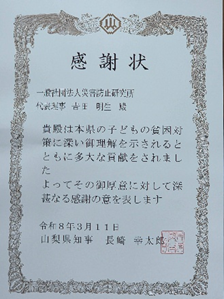 感謝状
一般社団法人災害防止研究所
代表理事 吉田 明生 殿
貴殿は本県の子どもの貧困対
策に深い御理解を示されると
ともに多大な貢献をされまし
た
よってその御厚意に対して深
甚なる感謝の意を表します
令和8年3月11日
山梨県知事 長崎 幸太郎